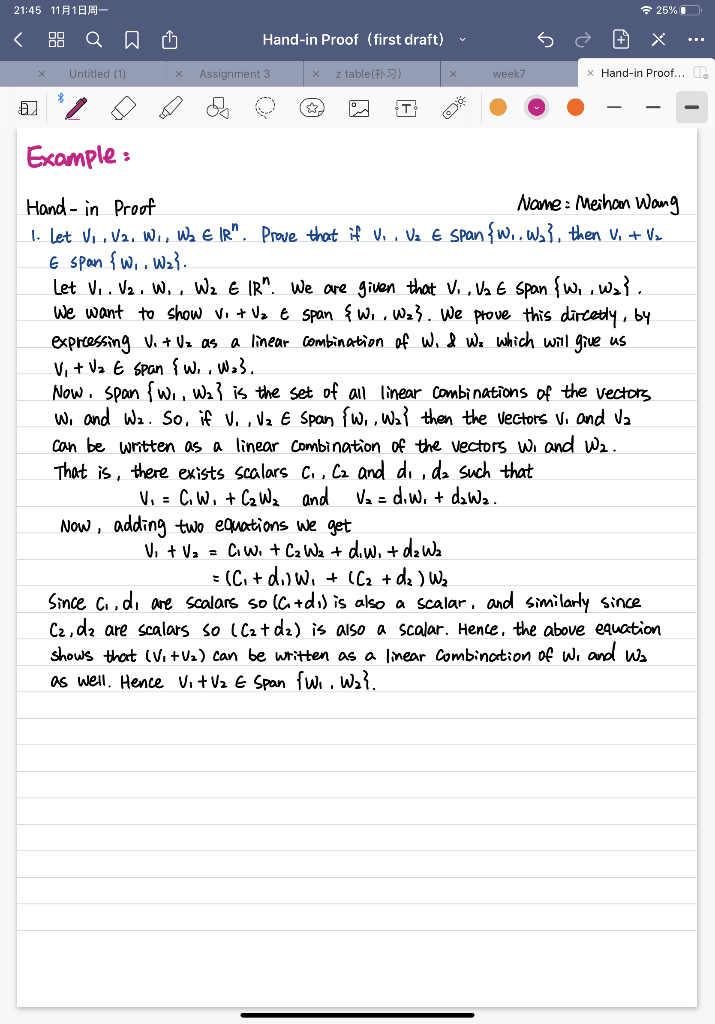 21:45 11月1日周一
25%
Hand-in Proof (first draft)
Untitled (1)
Assignment 3
z table(补习)
week7
Hand-in Proof...
Example:
Hand-in Proof
Name: Meihan Wang
1. Let V₁, V₂, W₁, W₂ ∈ ℝⁿ. Prove that if V₁, V₂ ∈ span{W₁, W₂}, then V₁ + V₂
∈ span {W₁, W₂}.
Let V₁, V₂, W₁, W₂ ∈ ℝⁿ. We are given that V₁, V₂ ∈ span {W₁, W₂}.
We want to show V₁ + V₂ ∈ span {W₁, W₂}. We prove this dircetly, by
exprcessing V₁ + V₂ as a linear combination of W₁ & W₂ which will give us
V₁ + V₂ ∈ span {W₁, W₂}.
Now, span {W₁, W₂} is the set of all linear combinations of the vectors
W₁ and W₂. So, if V₁, V₂ ∈ span {W₁, W₂} then the vectors V₁ and V₂
can be written as a linear combination of the vectors W₁ and W₂.
That is, there exists scalars C₁, C₂ and d₁, d₂ such that
V₁ = C₁W₁ + C₂W₂ and V₂ = d₁W₁ + d₂W₂.
Now, adding two equations we get
V₁ + V₂ = C₁W₁ + C₂W₂ + d₁W₁ + d₂W₂
= (C₁ + d₁)W₁ + (C₂ + d₂)W₂
Since C₁, d₁ are scalars so (C₁+d₁) is also a scalar, and similarly since
C₂, d₂ are scalars so (C₂+d₂) is also a scalar. Hence, the above equation
shows that (V₁+V₂) can be written as a linear combination of W₁ and W₂
as well. Hence V₁ + V₂ ∈ span {W₁, W₂}.